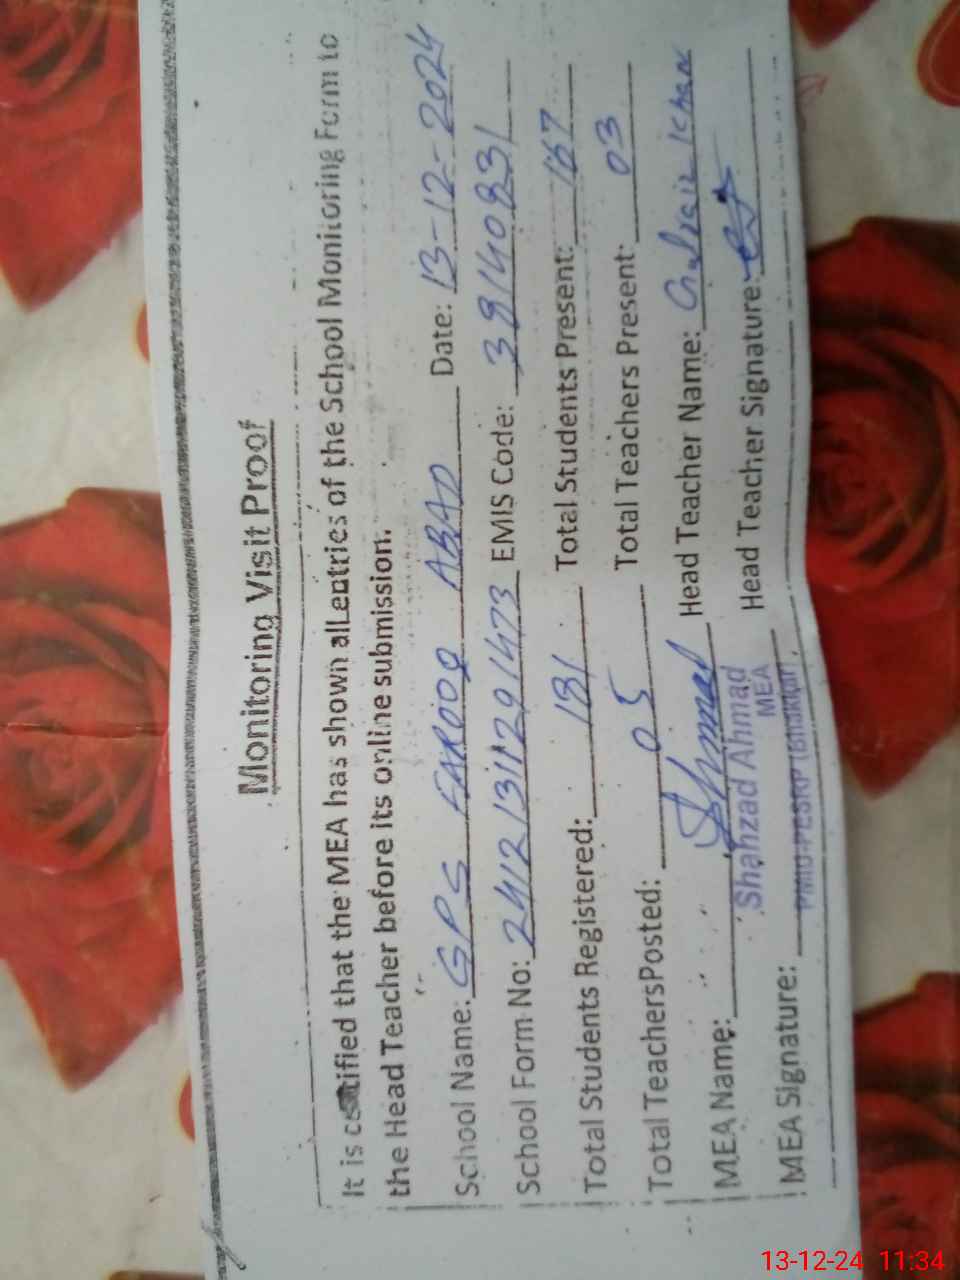 Monitoring Visit Proof
It is certified that the MEA has shown all entries of the School Monitoring Form to
the Head Teacher before its online submission.
School Name: GPS FAROOQ ABAD Date: 13-12-2024
School Form No: 24121311291473 EMIS Code:
Total Students Registered: 181 Total Students Present: 167
Total Teachers Posted: 05 Total Teachers Present: 03
MEA Name: Head Teacher Name: Khan
Shahzad Ahmad
MEA
MEA Signature: PMIU-PESRP (Bhakkar) Head Teacher Signature:
13-12-24 11:34